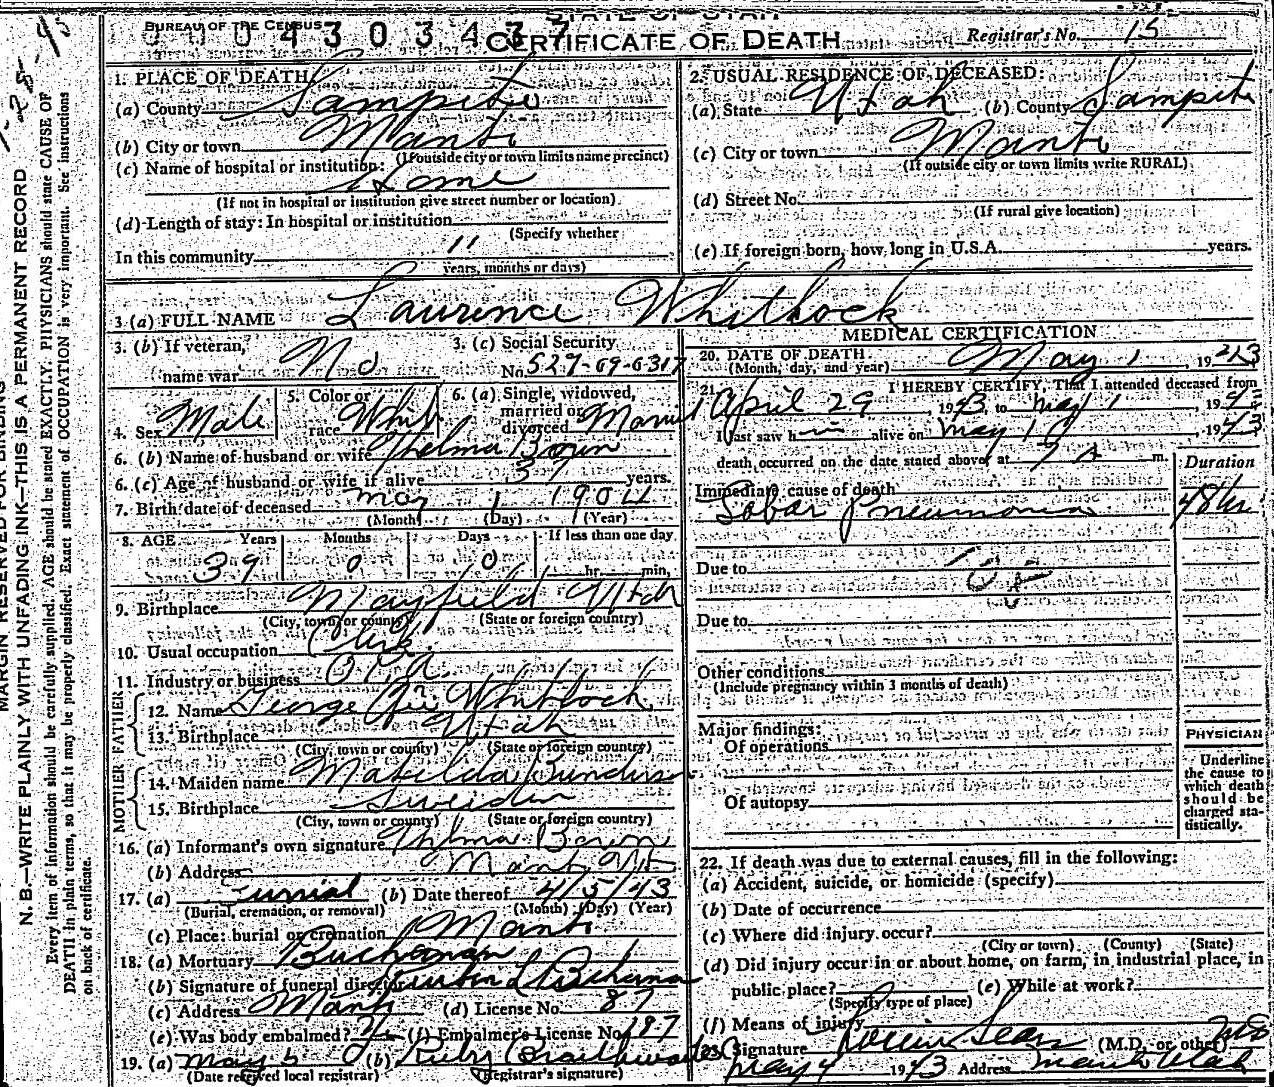 BUREAU OF THE CENSUS
STATE OF UTAH
0 0 0 4 3 0 3 4 3 7
CERTIFICATE OF DEATH
Registrar's No. 15
MARGIN RESERVED FOR BINDING
N. B—WRITE PLAINLY WITH UNFADING INK—THIS IS A PERMANENT RECORD
Every item of information should be carefully supplied. AGE should be stated EXACTLY. PHYSICIANS should state CAUSE OF
DEATH in plain terms, so that it may be properly classified. Exact statement of OCCUPATION is very important. See instructions
on back of certificate.
1. PLACE OF DEATH
(a) County Sanpete
(b) City or town Manti
(If outside city or town limits name precinct)
(c) Name of hospital or institution:
Home
(If not in hospital or institution give street number or location)
(d) Length of stay: In hospital or institution
(Specify whether
In this community 11
years, months or days)
2. USUAL RESIDENCE OF DECEASED:
(a) State Utah (b) County Sanpete
(c) City or town Manti
(If outside city or town limits write RURAL)
(d) Street No.
(If rural give location)
(e) If foreign born, how long in U.S.A. years.
3 (a) FULL NAME Laurence Whitlock
3. (b) If veteran, name war No
3. (c) Social Security No. 529-09-6317
4. Sex Male
5. Color or race White
6. (a) Single, widowed, married or divorced Married
6. (b) Name of husband or wife Thelma
6. (c) Age of husband or wife if alive 37 years.
7. Birth date of deceased May 1 1904
(Month) (Day) (Year)
8. AGE Years Months Days If less than one day
39 0 0 hr. min.
9. Birthplace Mayfield Utah
(City, town or county) (State or foreign country)
10. Usual occupation Clerk
11. Industry or business O.P.A.
FATHER
12. Name George Whitlock
13. Birthplace Utah
(City, town or county) (State or foreign country)
MOTHER
14. Maiden name Matilda
15. Birthplace Sweden
(City, town or county) (State or foreign country)
16. (a) Informant's own signature
(b) Address Manti Ut
17. (a) Burial (b) Date thereof 4/5/43
(Burial, cremation, or removal) (Month) (Day) (Year)
(c) Place: burial or cremation Manti
18. (a) Mortuary Buchanan
(b) Signature of funeral director
(c) Address Manti (d) License No. 87
(e) Was body embalmed? Yes (f) Embalmer's License No. 197
19. (a) May 5 (b) Ruby Braithwaite
(Date received local registrar) (Registrar's signature)
MEDICAL CERTIFICATION
20. DATE OF DEATH May 1, 1943
(Month, day, and year)
21. I HEREBY CERTIFY, That I attended deceased from
April 29, 1943, to May 1, 1943
I last saw him alive on May 1, 1943
death occurred on the date stated above, at m.
Duration
Immediate cause of death
Lobar Pneumonia 48 hr
Due to
Due to
Other conditions
(Include pregnancy within 3 months of death)
Major findings:
Of operations
Of autopsy
PHYSICIAN
Underline
the cause to
which death
should be
charged sta-
tistically.
22. If death was due to external causes, fill in the following:
(a) Accident, suicide, or homicide (specify)
(b) Date of occurrence
(c) Where did injury occur?
(City or town) (County) (State)
(d) Did injury occur in or about home, on farm, in industrial place, in
public place? (e) While at work?
(Specify type of place)
(f) Means of injury
23. Signature Sears (M.D. or other) MD
May 4 1943 Address Manti Utah